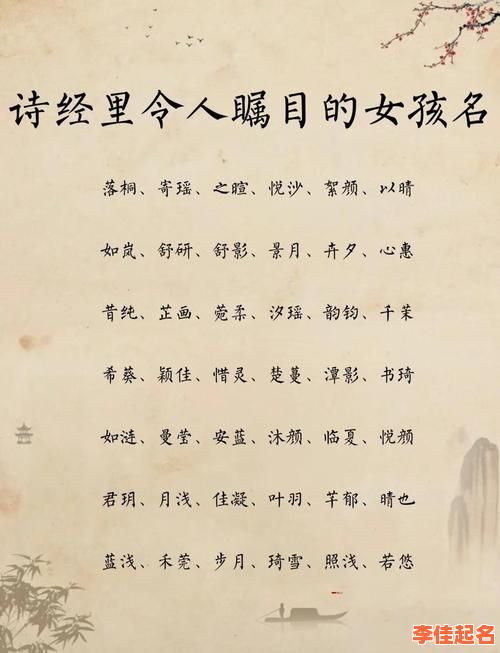 诗经里令人瞩目的女孩名
落桐、寄瑶、之暄、悦沙、絮颜、以晴
如岚、舒研、舒影、景月、卉夕、心惠
昔纯、芷画、菀柔、汐瑶、韵钧、千茉
希葵、颖佳、惜灵、楚蔓、潭影、书琦
如涟、曼莹、安蓝、沐颜、临夏、悦颜
君玥、月浅、佳凝、叶羽、芊郁、晴也
蓝浅、禾莞、步月、琦雪、照浅、若悠
李佳起名